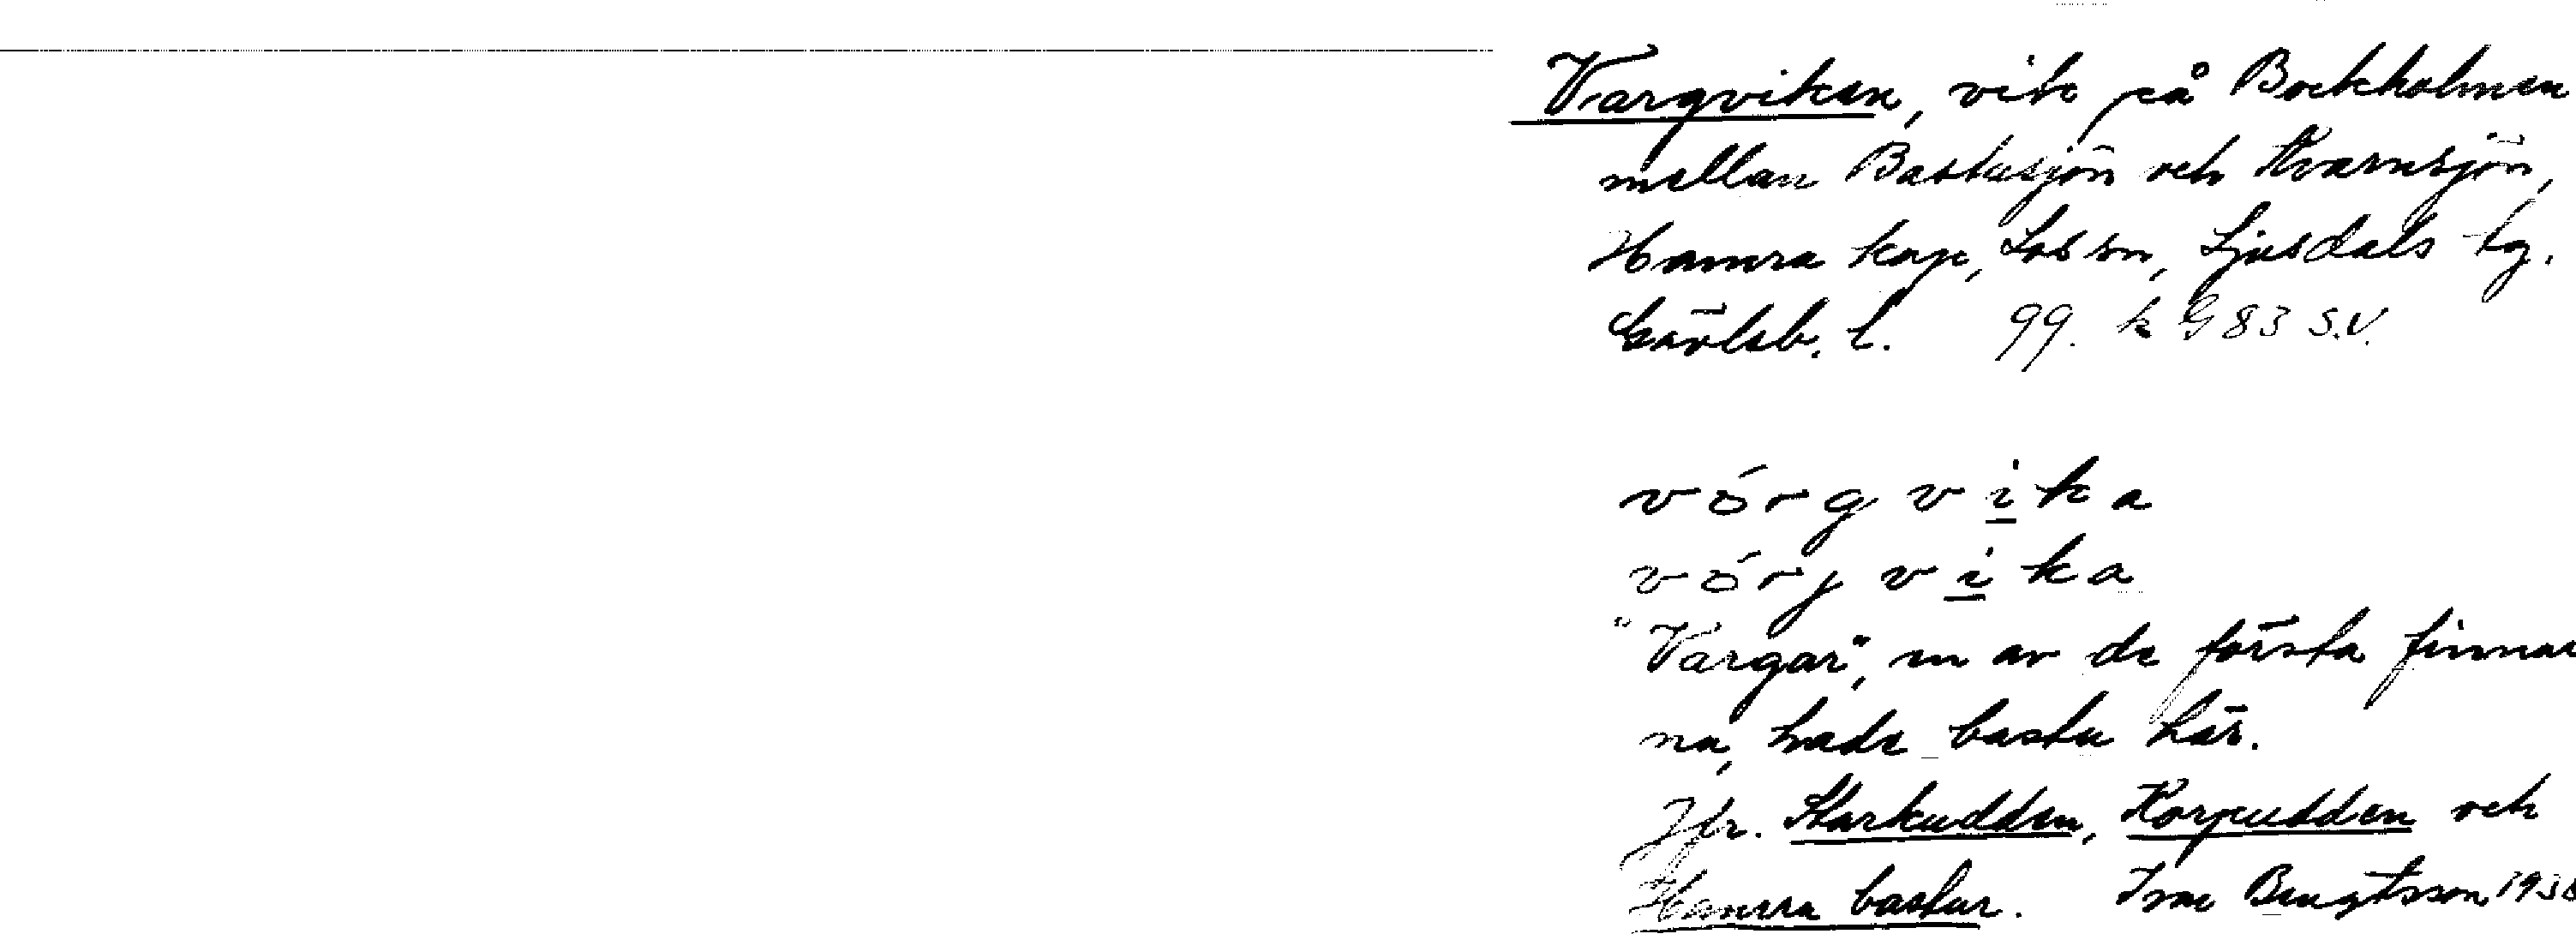 Vargviken, vik på Bockholmen
mellan Bastusjön och Kvarnsjön,
Hamra kap, Los sn, Ljusdals tg.
Gävleb. l. 99. k G 83 S.V.
vórgvika
vórjvika
"Vargar", en av de första finnar
na, hade bastu här.
Jfr. Starkudden, Korpudden och
Hamra bastur. Bengtsson